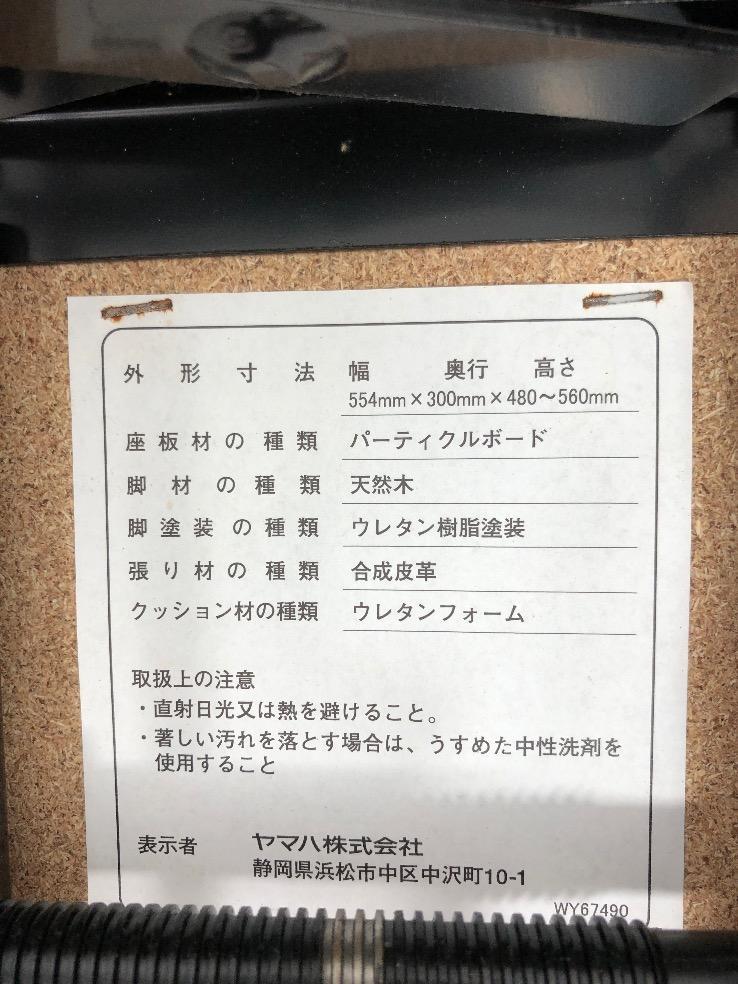 外形寸法 幅 奥行 高さ
554mm×300mm×480～560mm
座板材の種類 パーティクルボード
脚材の種類 天然木
脚塗装の種類 ウレタン樹脂塗装
張り材の種類 合成皮革
クッション材の種類 ウレタンフォーム
取扱上の注意
・直射日光又は熱を避けること。
・著しい汚れを落とす場合は、うすめた中性洗剤を
使用すること
表示者 ヤマハ株式会社
静岡県浜松市中区中沢町10-1
WY67490